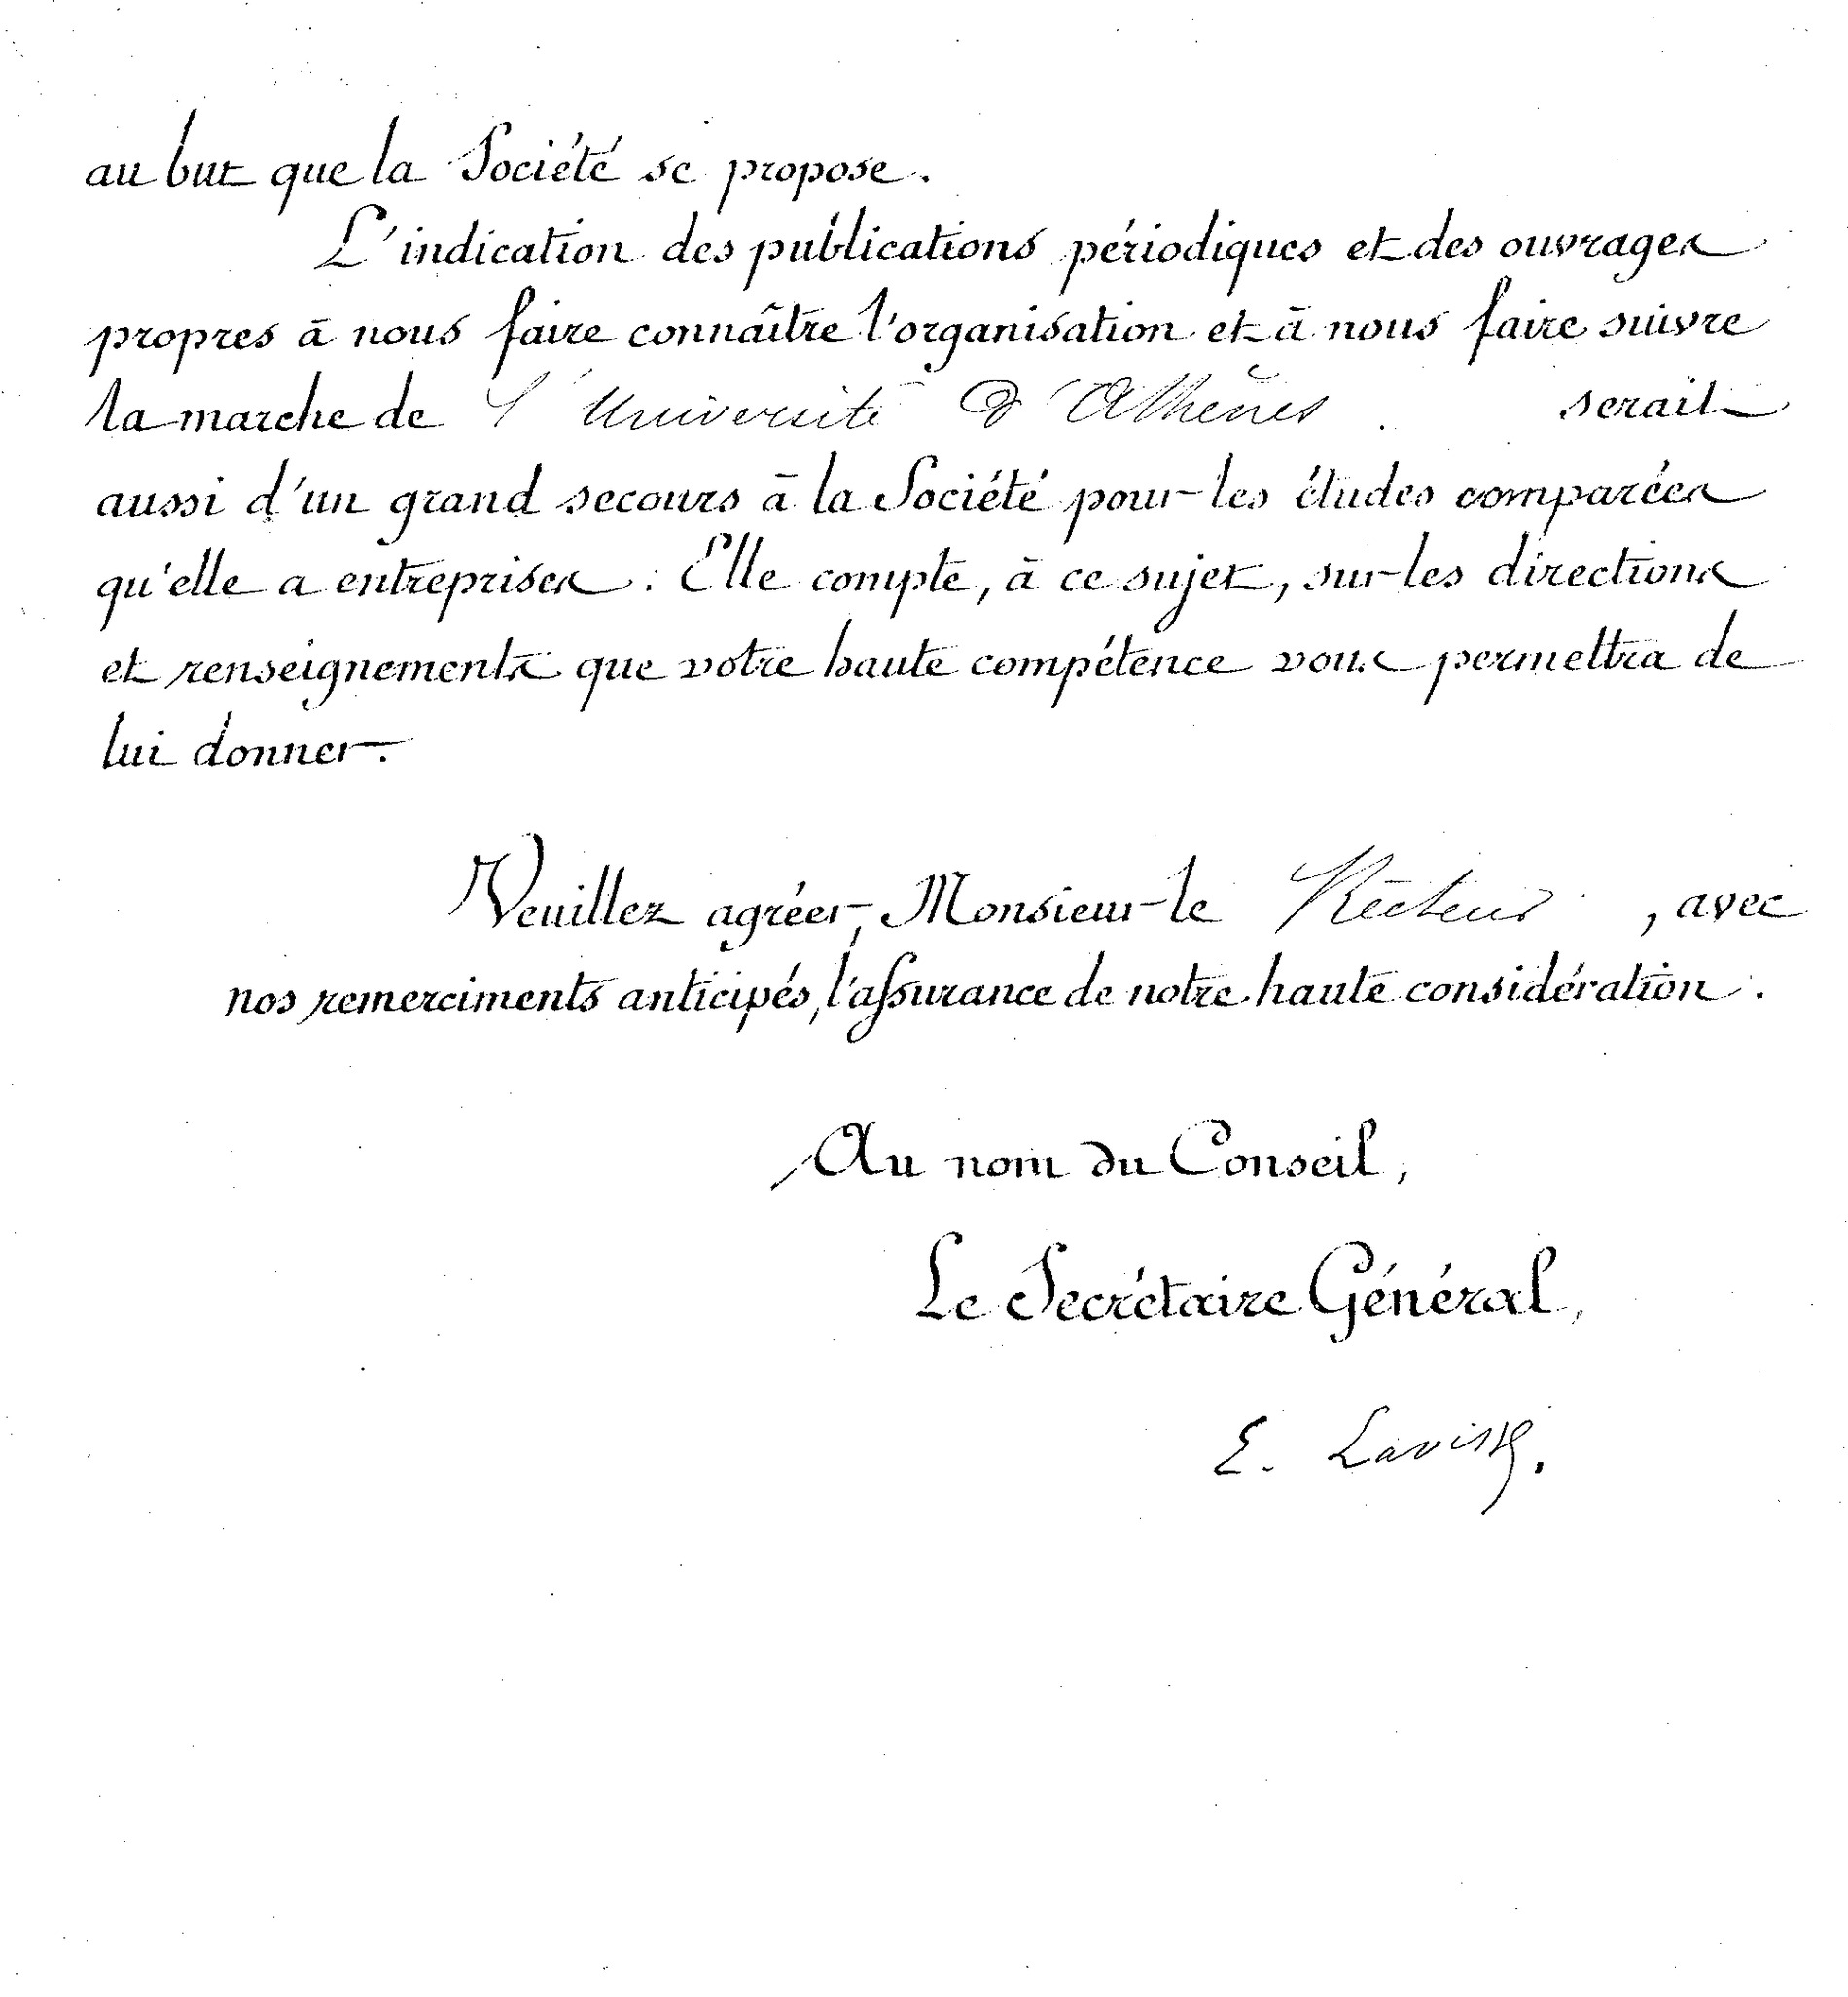 au but que la Société se propose.
L'indication des publications périodiques et des ouvrages
propres à nous faire connaître l'organisation et à nous faire suivre
la marche de l'Université d'Athènes. serait
aussi d'un grand secours à la Société pour les études comparées
qu'elle a entreprises. Elle compte, à ce sujet, sur les directions
et renseignements que votre haute compétence vous permettra de
lui donner.
Veuillez agréer, Monsieur le Recteur, avec
nos remerciments anticipés, l'assurance de notre haute considération.
Au nom du Conseil,
Le Secrétaire Général,
E. Lavisse.